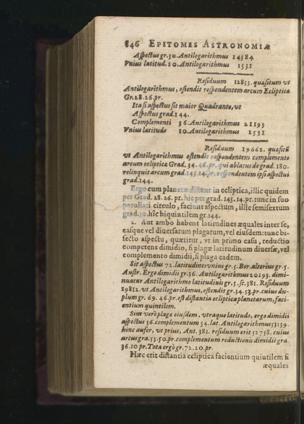 846 EPITOMES ASTRONOMIÆ
Aspectus gr. 30. Antilogarithmus 14384
Vnius latitud. 10. Antilogarithmus 1532
Residuum 12853. quæsitum vt
Antilogarithmus, ostendit respondentem arcum Eclipticæ
Gr. 28. 26. pr.
Ita si aspectus sit maior Quadrante, vt
Aspectus grad 144.
Complementi 36. Antilogarithmus 21193
Vnius latitudo 10. Antilogarithmus 1532
Residuum 19661. quæsitū
vt Antilogarithmus ostendit respondentem complemento
arcum ecliptica Grad. 34. 46. pr. qui ablatus de grad. 180.
relinquit arcum grad. 145. 14. pr. respondentem ipsi aspectui
grad. 144.
Ergo cum planetæ distant in ecliptica, illic quidem
per Grad. 28. 26. pr. hic per grad. 145. 14. pr. tunc in suo
peculiari circulo, faciunt aspectum, illic semisextum
grad. 30. hic biquintilem gr. 144.
2. Aut ambo habent latitudines æquales inter se,
easque vel diuersarum plagarum, vel eiusdem: tunc bi-
secto aspectu, quæritur, vt in primo casu, reductio
competens dimidio, si plagæ latitudinum diuersæ, vel
complemento dimidii, si plaga eadem.
Sit aspectus 72. latitudinum vnius gr. 5. Bor. alterius gr. 5.
Austr. Ergo dimidii gr. 36. Antilogarithmus 21193. dimi-
nuatur Antilogarithmo latitudinis gr. 5. sc. 381. Residuum
vt Antilogarithmus, ostendit gr. 34. 53. pr. cuius du-
plum gr. 69. 46. pr. est distantia eclipticæ planetarum, faci-
entium quintilem.
Sint verò plagæ eiusdem, vtraque latitudo, ergo dimidii
aspectus 36. complementum 54. lat. Antilogarithmus
hinc aufer, vt prius, Ant. 381. residuum erit cuius
arcus gr. 53. 50. pr. complementum reductionis dimidii gra.
36. 10 pr. Tota ergò gr. 72. 20. pr.
Hæc erit distantia ecliptica facientium quintilem si
æquales